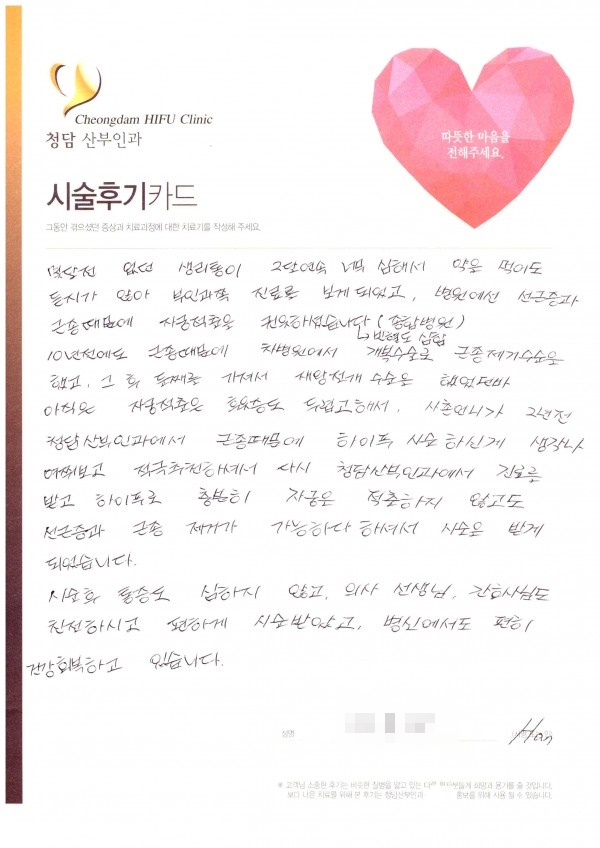 Cheongdam HIFU Clinic
청담 산부인과
따뜻한 마음을
전해주세요.
시술후기카드
그동안 겪으셨던 증상과 치료과정에 대한 치료기를 작성해 주세요.
몇달전 없던 생리통이 2달연속 너무 심해서 약을 먹어도
듣지가 않아 부인과쪽 진료를 보게되었고, 병원에선 선근증과
근종때문에 자궁적출을 권유하셨습니다 (종합병원)
↳ 빈혈도 심함
10년전에도 근종때문에 차병원에서 개복수술로 근종제거수술을
했고, 그 후 둘째를 가져서 제왕절개 수술을 했었던바
아직은 자궁적출은 후유증도 두렵고해서, 사촌언니가 2년전
청담산부인과에서 근종때문에 하이푸 시술 하신게 생각나
여쭤보고 적극추천하셔서 다시 청담산부인과에서 진료를
받고 하이푸로 충분히 자궁은 적출하지 않고도
선근증과 근종 제거가 가능하다 하셔서 시술을 받게
되었습니다.
시술후 통증도 심하지 않고, 의사 선생님, 간호사님도
친절하시고 편하게 시술받았고, 병실에서도 편히
건강회복하고 있습니다.
성명
Han
※ 고객님 소중한 후기는 비슷한 질병을 앓고 있는 다른 환자분들께 희망과 용기를 줄 것입니다.
보다 나은 치료를 위해 본 후기는 청담산부인과 홍보를 위해 사용 될 수 있습니다.